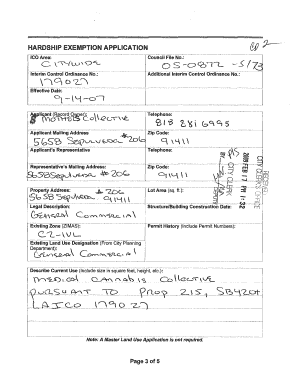 HARDSHIP EXEMPTION APPLICATION
CD 2
ICO Area:
CITYWIDE
Council File No.:
05-0872 - S/73
Interim Control Ordinance No.:
179027
Additional Interim Control Ordinance No.:
Effective Date:
9-14-07
Applicant (Record Owner):
Mothers Collective
Telephone:
818 2816995
Applicant Mailing Address
5658 Sepulveda #206
Zip Code:
91411
Applicant's Representative
Telephone:
Representative's Mailing Address:
5658 Sepulveda #206
Zip Code:
91411
Property Address: #206
5658 Sepulveda
Lot Area (sq. ft.):
Legal Description:
General Commercial
Structure/Building Construction Date:
Existing Zone (ZIMAS):
C2-1VL
Permit History (Include Permit Numbers):
Existing Land Use Designation (From City Planning
Department):
General Commercial
Describe Current Use (Include size in square feet, height, etc.):
Medical Cannabis Collective
pursuant to Prop 215, SB420+
LAICO 179027
CITY CLERK'S OFFICE
2009 FEB 17 PM 1:32
CITY CLERK
BY
DEPUTY
Note: A Master Land Use Application is not required.
Page 3 of 5